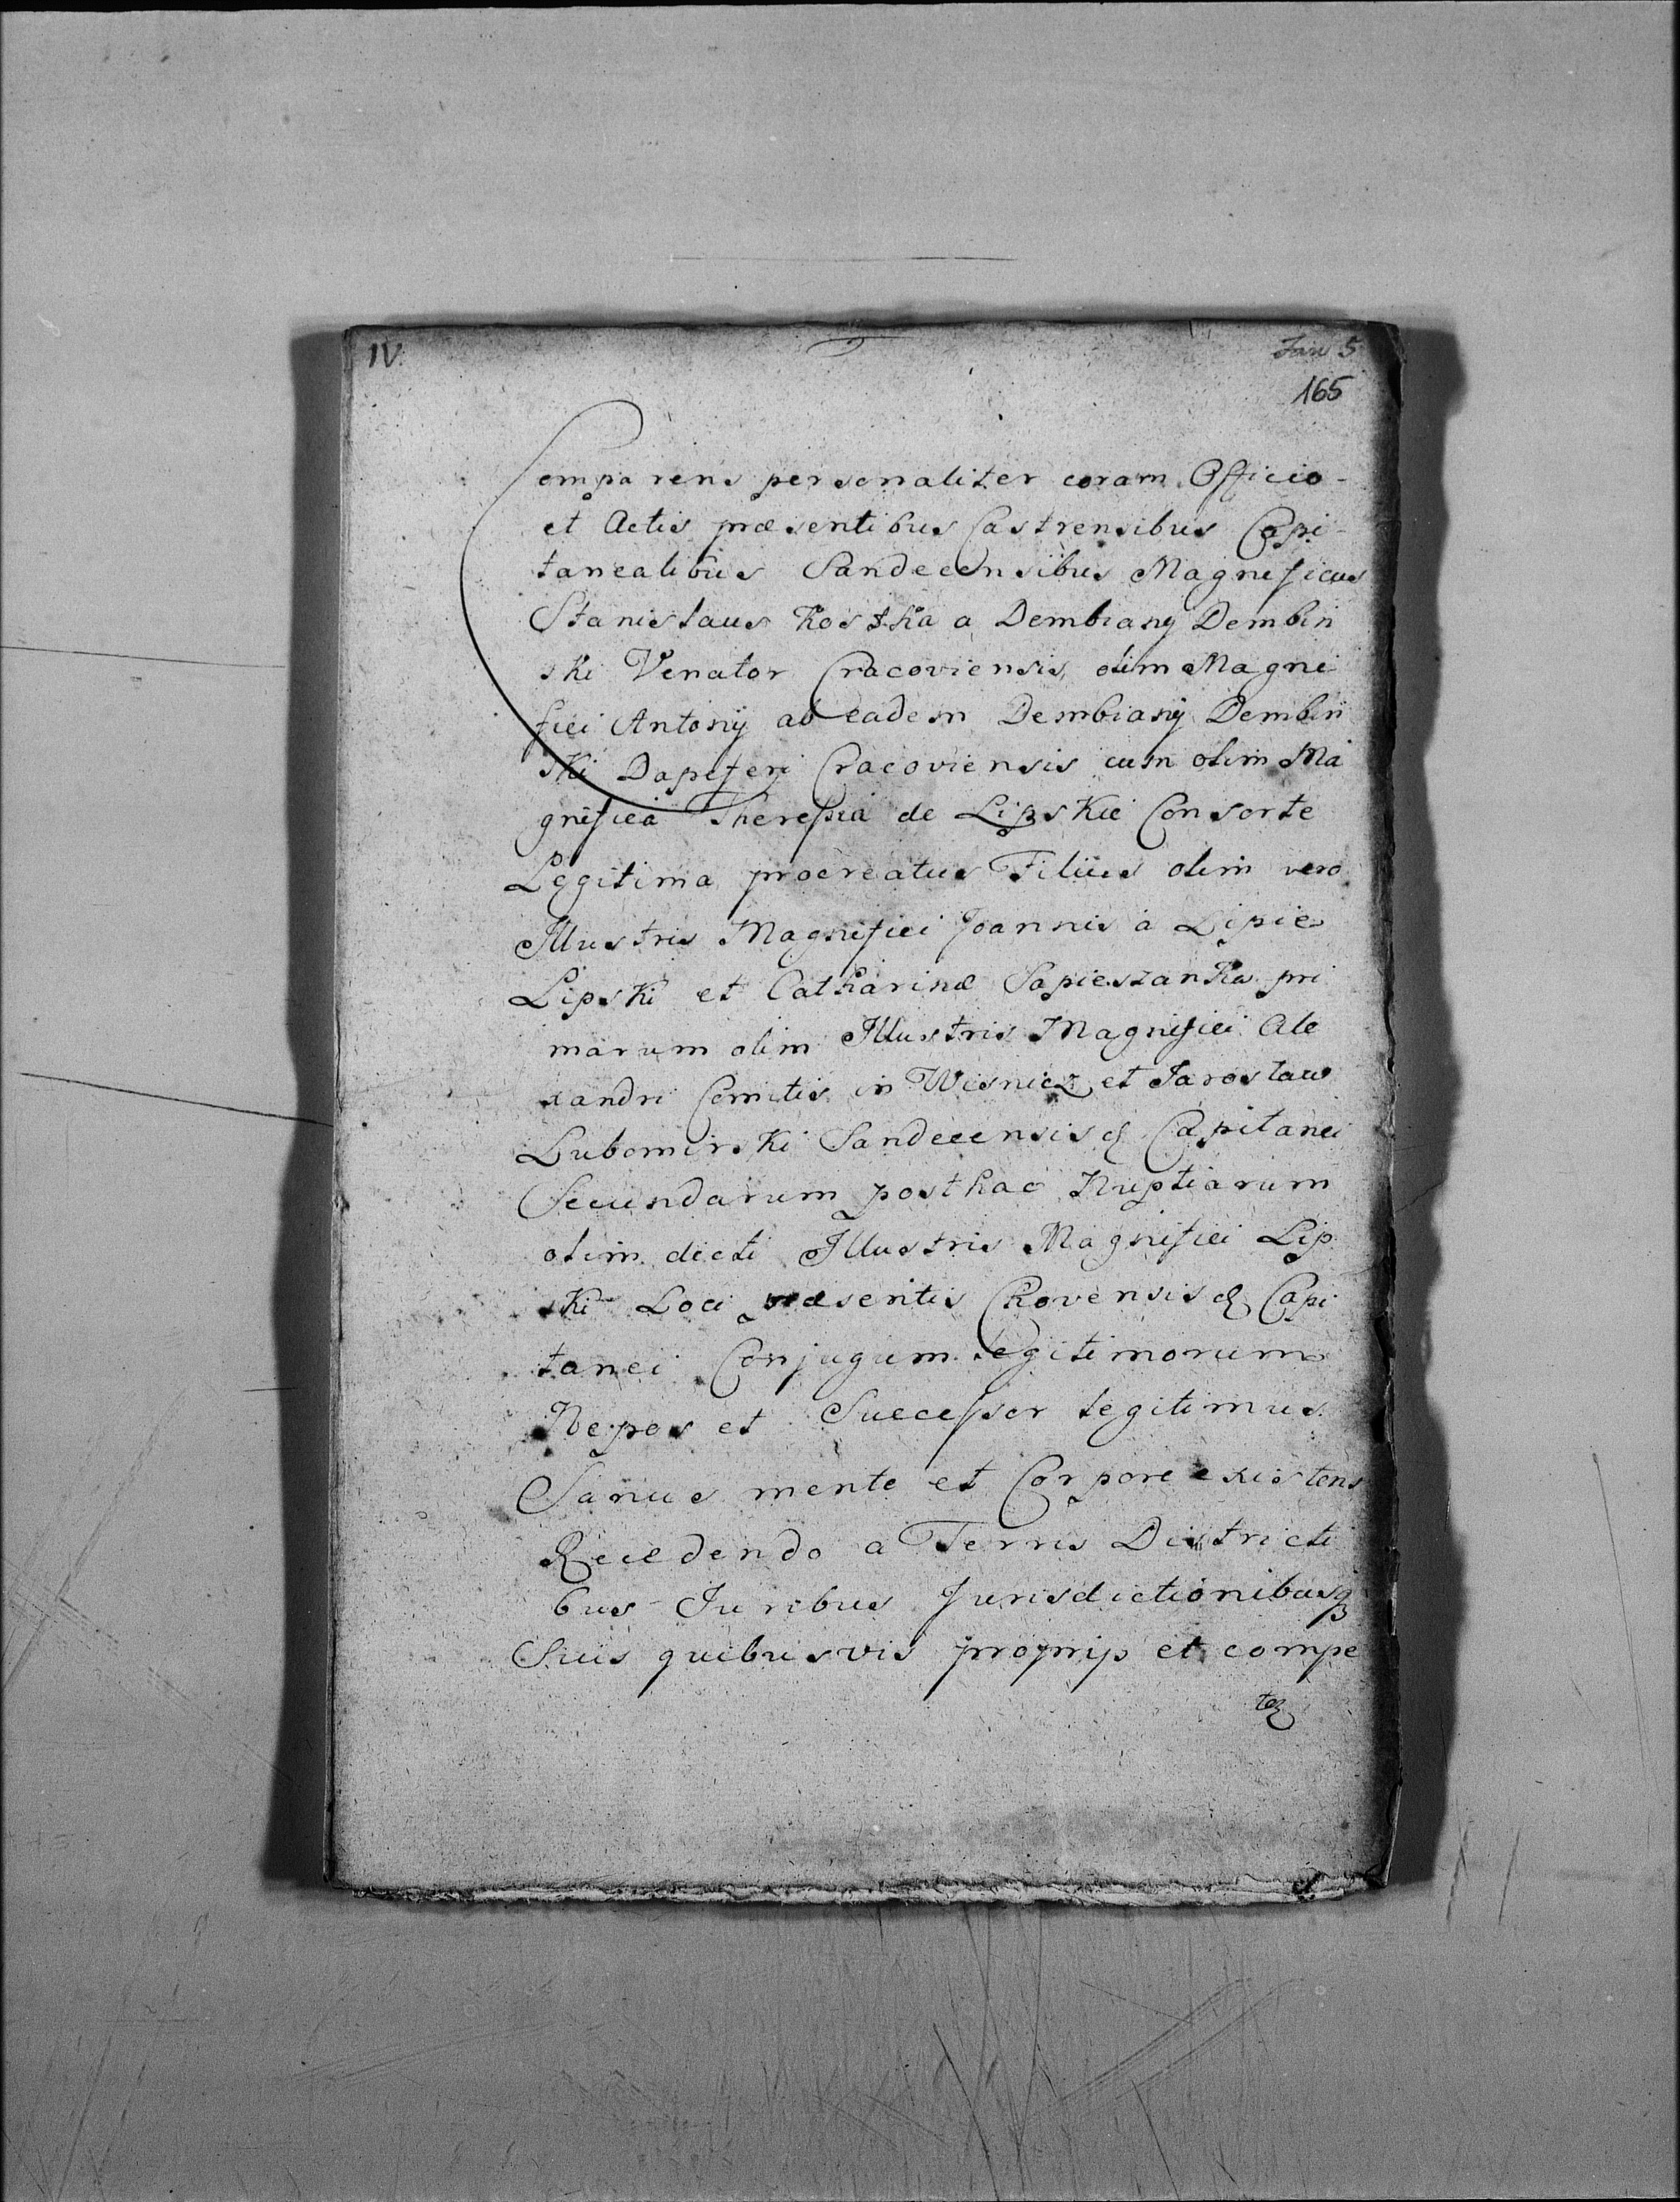 IV.
Fasc 5
165
Comparens personaliter coram Officio
et Actis præsentibus Castrensibus Capi-
tanealibus Sandecensibus Magnificus
Stanislaus Kostka a Dembiany Dembin
ski Venator Cracoviensis, olim Magni
fici Antonij ab eadem Dembiany Dembin
ski Dapiferi Cracoviensis cum olim Ma
gnifica Theressia de Lipskie Consorte
Legitima procreatus Filius olim vero
Illustris Magnifici Joannis a Lipie
Lipski et Catharinæ Sapieszanka pri
marum olim Illustris Magnifici Ale
xandri Comitis in Wisnicz et Jaroslaw
Lubomirski Sandecensis & Capitanei
Secundarum posthac Nuptiarum
olim dicti Illustris Magnifici Lip
ski Loci præsentis Chovensis & Capi
tanei Conjugum legitimorum
Nepos et Successor legitimus.
Sanus mente et Corpore existens
Recedendo a Terris Districti
bus Juribus Jurisdictionibusq3
Suis quibusvis proprijs et compe